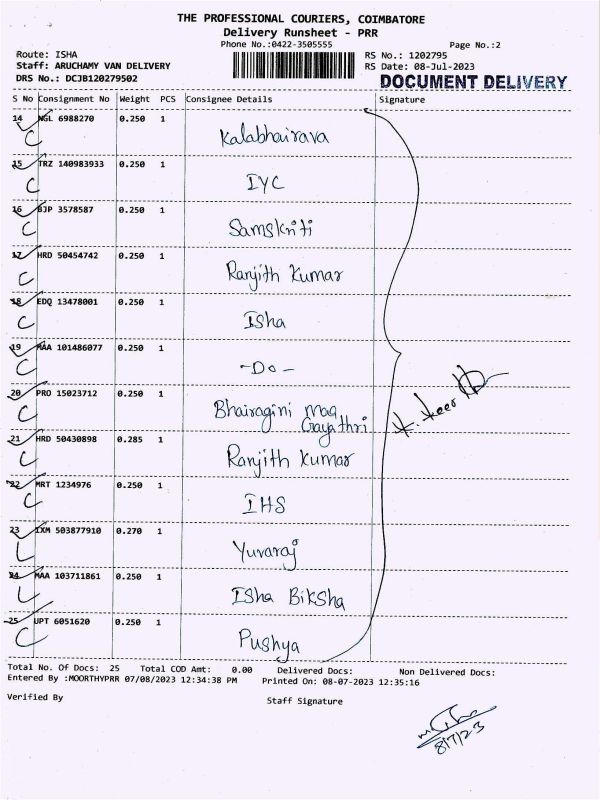 THE PROFESSIONAL COURIERS, COIMBATORE
Delivery Runsheet - PRR
Phone No.:0422-3505555
Page No.:2
Route: ISHA
RS No.: 1202795
Staff: ARUCHAMY VAN DELIVERY
RS Date: 08-Jul-2023
DRS No.: DCJB120279502
DOCUMENT DELIVERY
S No Consignment No Weight PCS Consignee Details Signature
14 NGL 6988270 0.250 1
C Kalabhairava
15 TRZ 140983933 0.250 1
C IYC
16 BJP 3578587 0.250 1
C Samskriti
17 HRD 50454742 0.250 1
C Ranjith Kumar
18 EDQ 13478001 0.250 1
C Isha
19 MAA 101486077 0.250 1
C -Do-
20 PRO 15023712 0.250 1
C Bhairagini maa
Gayathri
21 HRD 50430898 0.285 1
C Ranjith Kumar
22 MRT 1234976 0.250 1
C IHS
23 IXM 503877910 0.270 1
Yuvaraj
24 MAA 103711861 0.250 1
Isha Biksha
25 UPT 6051620 0.250 1
C Pushya
Total No. Of Docs: 25 Total COD Amt: 0.00 Delivered Docs: Non Delivered Docs:
Entered By :MOORTHYPRR 07/08/2023 12:34:38 PM Printed On: 08-07-2023 12:35:16
Verified By Staff Signature
8/7/23